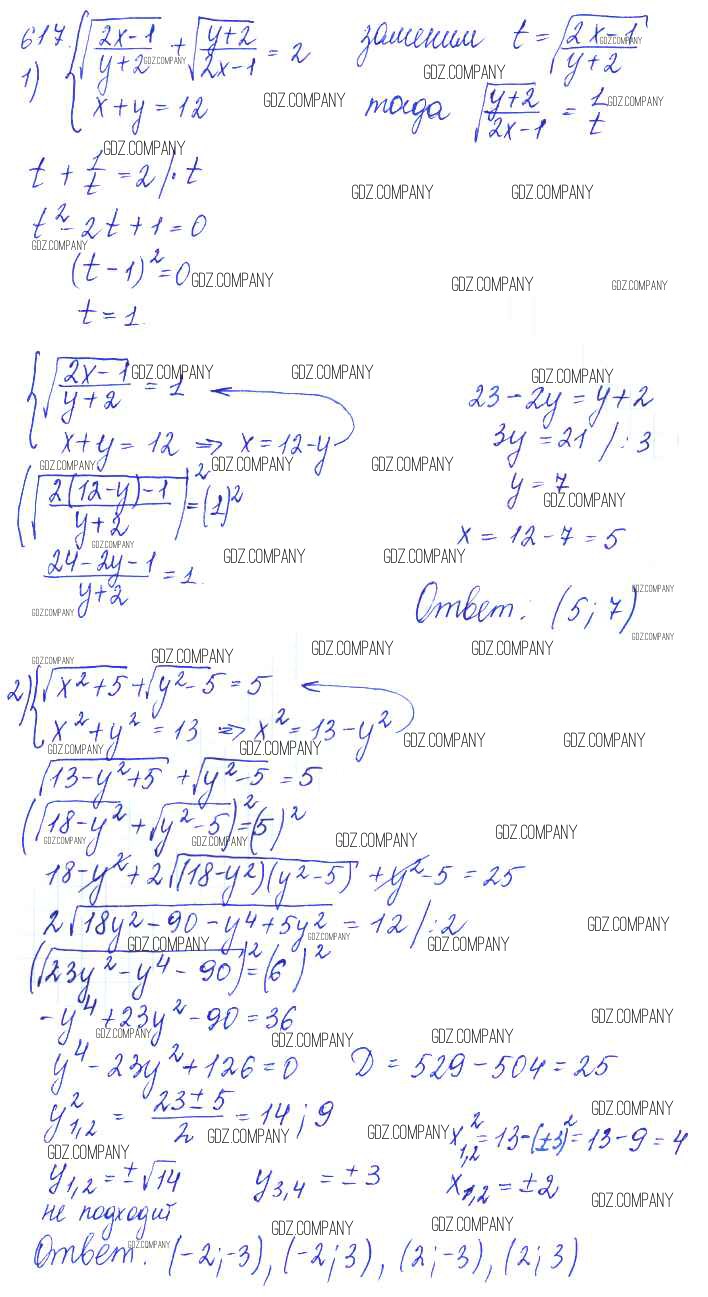 617.
1) { √((2x-1)/(y+2)) + √((y+2)/(2x-1)) = 2   заменим t = √((2x-1)/(y+2))
x+y = 12   тогда √((y+2)/(2x-1)) = 1/t
t + 1/t = 2 /· t
t² - 2t + 1 = 0
(t - 1)² = 0
t = 1.
{ √((2x-1)/(y+2)) = 1
x+y = 12 => x = 12-y
(√((2(12-y)-1)/(y+2)))² = (1)²
(24-2y-1)/(y+2) = 1.
23 - 2y = y+2
3y = 21 /: 3
y = 7
x = 12 - 7 = 5
Ответ: (5; 7)
2) { √(x²+5) + √(y²-5) = 5
x² + y² = 13 => x² = 13 - y²
√(13-y²+5) + √(y²-5) = 5
(√(18-y²) + √(y²-5))² = (5)²
18 - y² + 2√((18-y²)(y²-5)) + y² - 5 = 25
2√(18y² - 90 - y⁴ + 5y²) = 12 /: 2
(√(23y² - y⁴ - 90))² = (6)²
-y⁴ + 23y² - 90 = 36
y⁴ - 23y² + 126 = 0   D = 529 - 504 = 25
y²₁,₂ = (23 ± 5)/2 = 14; 9
x²₁,₂ = 13 - (±3)² = 13 - 9 = 4
y₁,₂ = ±√14   y₃,₄ = ±3   x₁,₂ = ±2
не подходит
Ответ: (-2; -3), (-2; 3), (2; -3), (2; 3)
GDZ.COMPANY